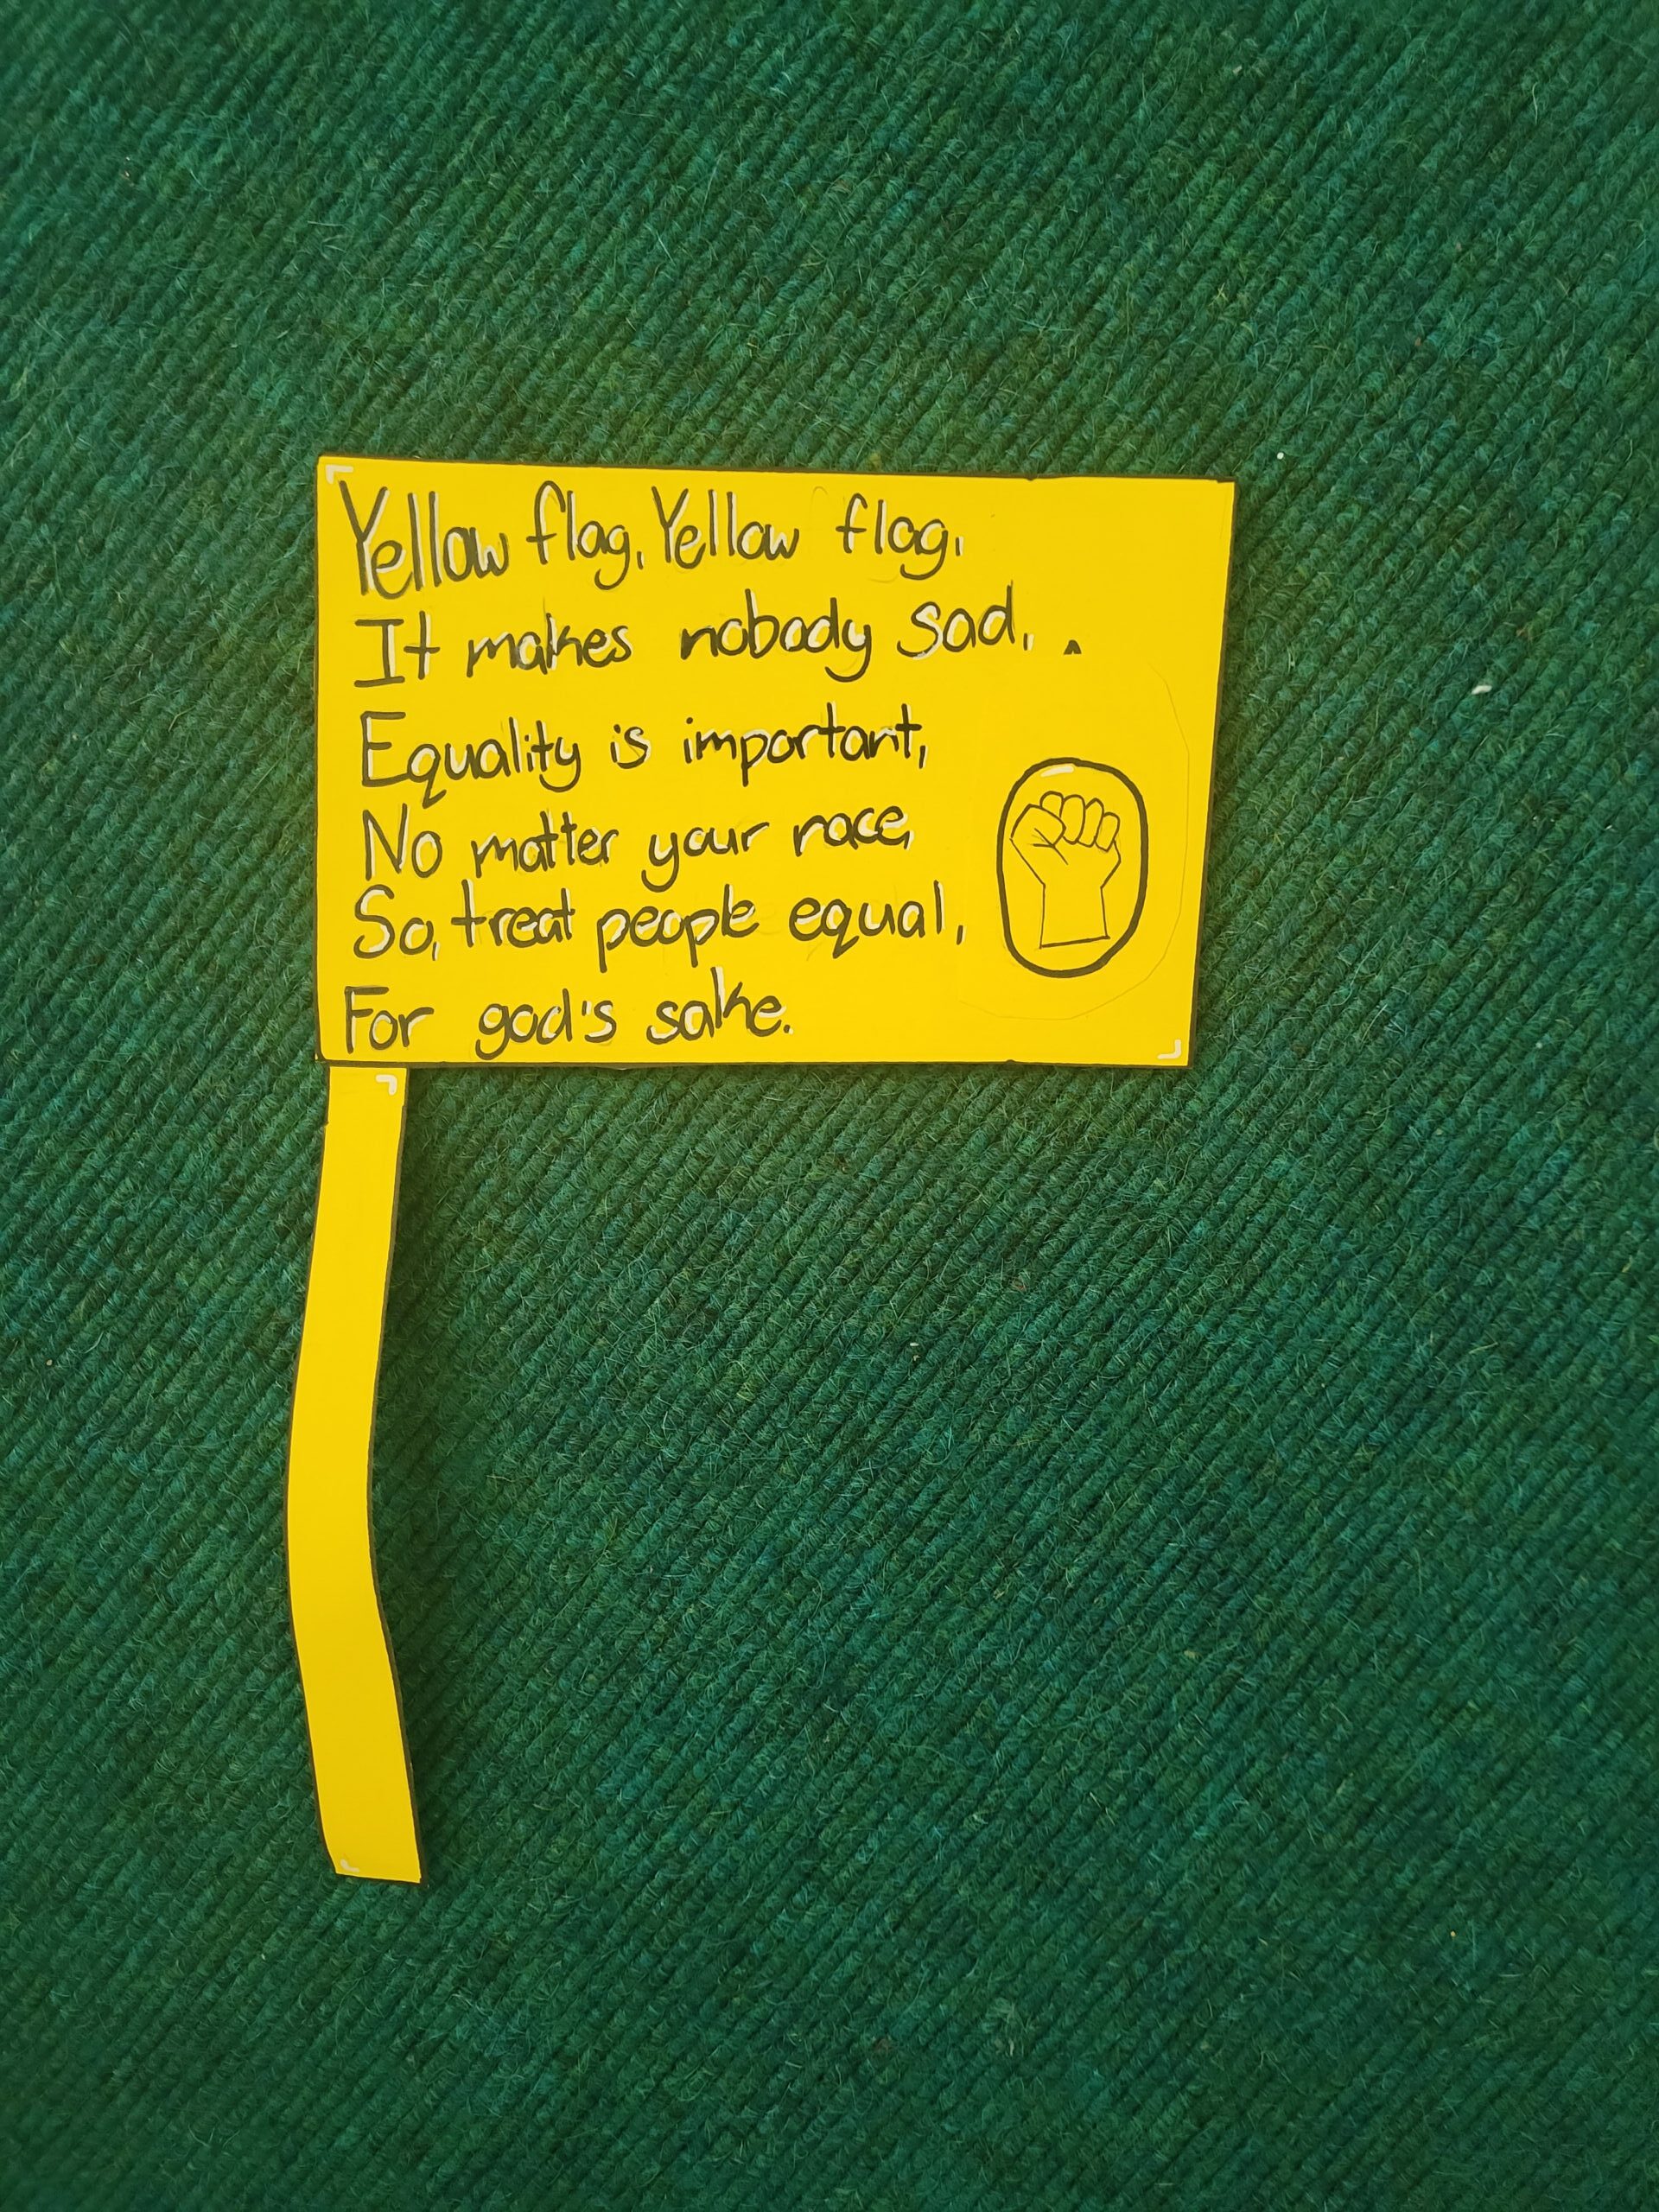 Yellow flag, Yellow flag,
It makes nobody sad,
Equality is important,
No matter your race,
So, treat people equal,
For god's sake.